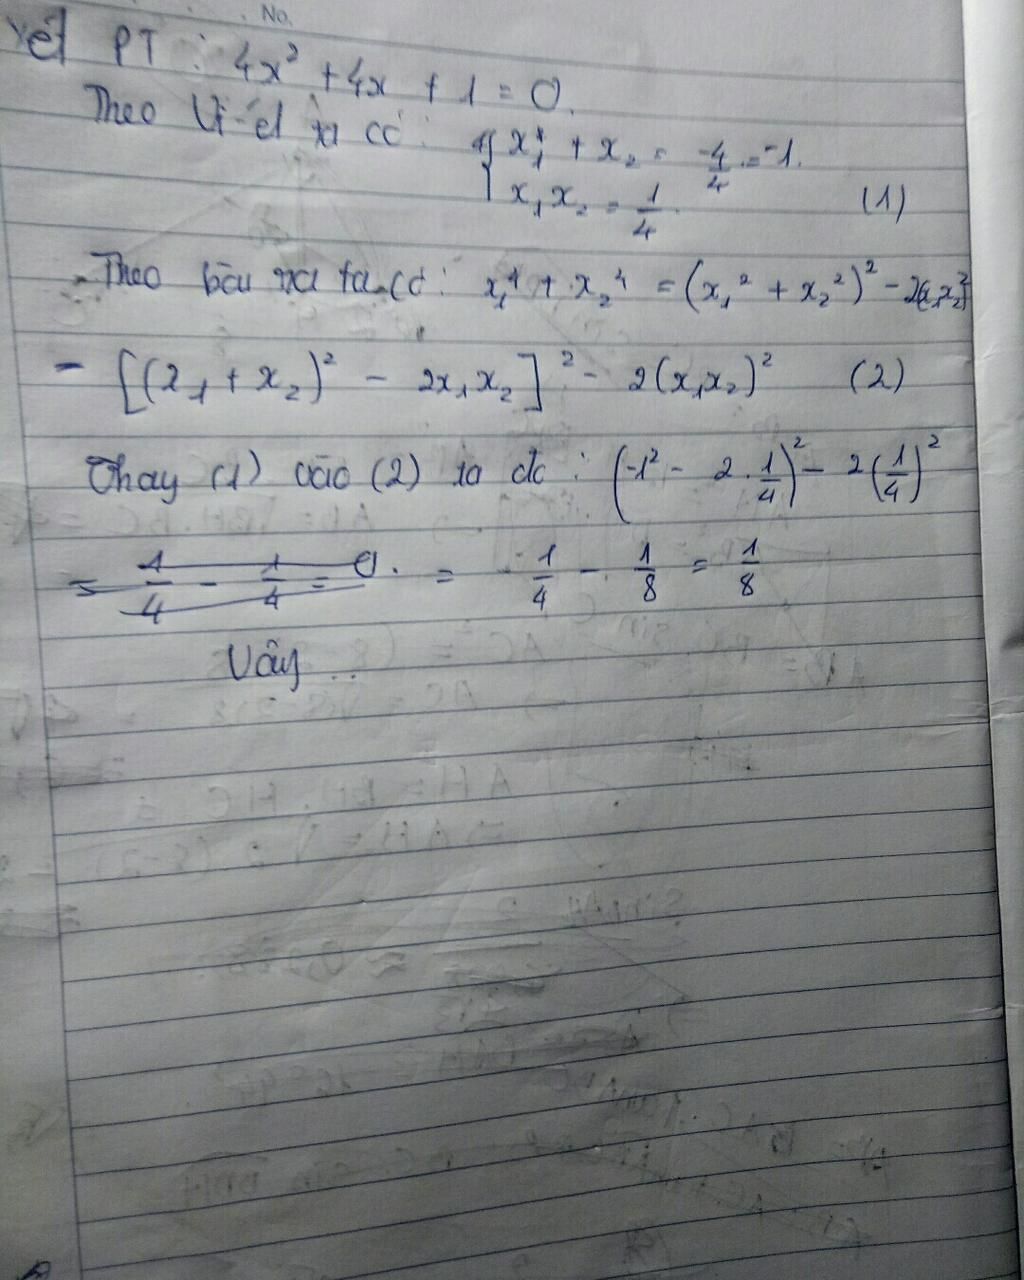 No.
Xét PT : 4x² + 4x + 1 = 0.
Theo Vi-ét ta có : { x₁ + x₂ = -4/4 = -1.
x₁x₂ = 1/4. (1)
Theo bài ra ta có : x₁⁴ + x₂⁴ = (x₁² + x₂²)² - 2(x₁x₂)²
= [(x₁ + x₂)² - 2x₁x₂]² - 2(x₁x₂)² (2)
Thay (1) vào (2) ta đc : (-1² - 2.1/4)² - 2(1/4)²
= 1/4 - 1/4 = 0. = 1/4 - 1/8 = 1/8
Vậy ..